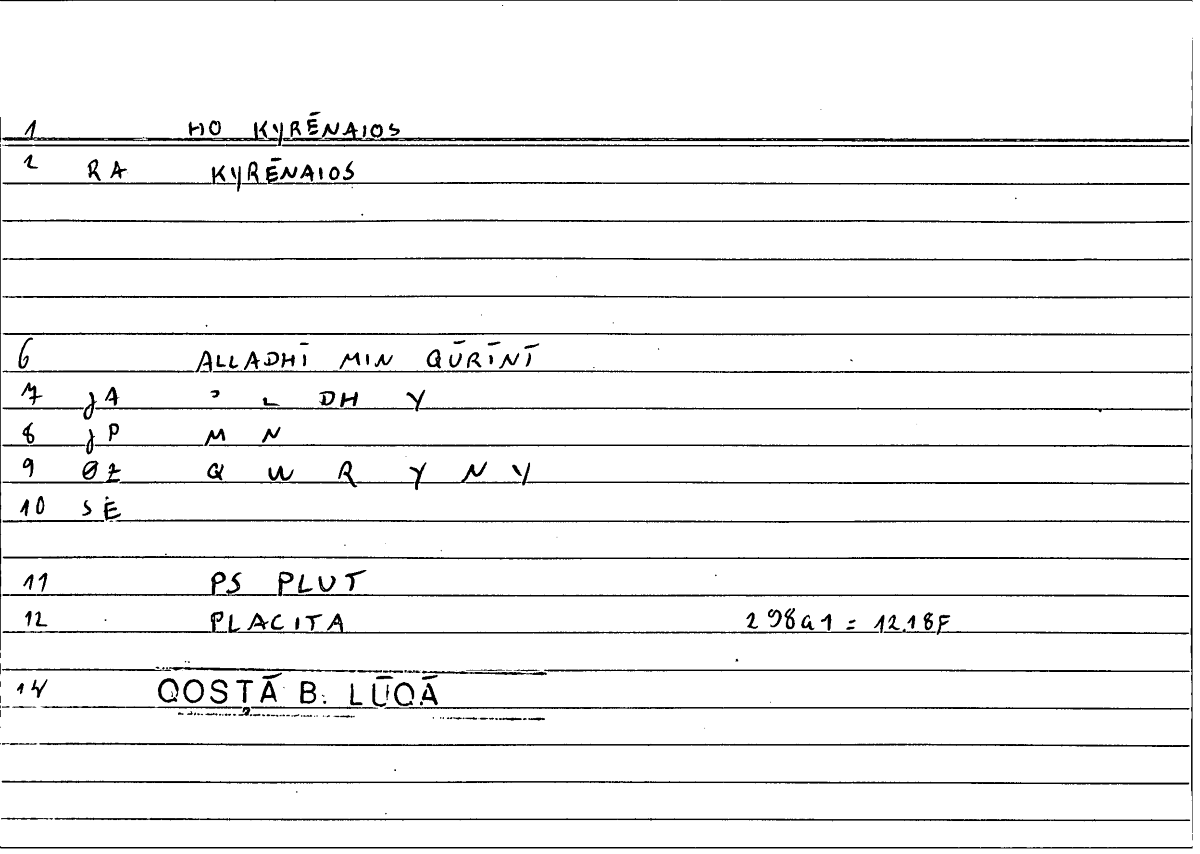 1 HO KYRĒNAIOS
2 RA KYRĒNAIOS
6 ALLADHĪ MIN QŪRĪNĪ
7 JA ʾ L DH Y
8 JP M N
9 ØZ Q W R Y N Y
10 SE
11 PS PLUT
12 PLACITA 298a1 = 12.18F
14 QOSṬĀ B. LŪQĀ